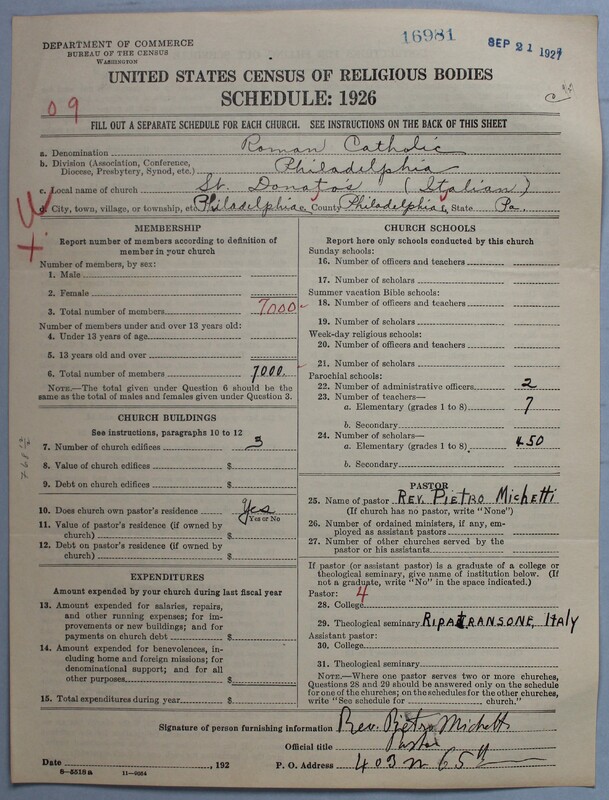 16981
SEP 21 1927
DEPARTMENT OF COMMERCE
BUREAU OF THE CENSUS
WASHINGTON
UNITED STATES CENSUS OF RELIGIOUS BODIES
SCHEDULE: 1926
09
FILL OUT A SEPARATE SCHEDULE FOR EACH CHURCH. SEE INSTRUCTIONS ON THE BACK OF THIS SHEET
a. Denomination Roman Catholic
b. Division (Association, Conference, Diocese, Presbytery, Synod, etc.) Philadelphia
c. Local name of church St. Donato's (Italian)
d. City, town, village, or township, etc. Philadelphia County Philadelphia State Pa.
MEMBERSHIP
Report number of members according to definition of
member in your church
Number of members, by sex:
1. Male
2. Female
3. Total number of members 7000
Number of members under and over 13 years old:
4. Under 13 years of age
5. 13 years old and over
6. Total number of members 7000.
NOTE.—The total given under Question 6 should be
same as the total of males and females given under Question 3.
CHURCH BUILDINGS
See instructions, paragraphs 10 to 12
7. Number of church edifices 3
8. Value of church edifices $
9. Debt on church edifices $
10. Does church own pastor's residence Yes
Yes or No
11. Value of pastor's residence (if owned by
church) $
12. Debt on pastor's residence (if owned by
church) $
EXPENDITURES
Amount expended by your church during last fiscal year
13. Amount expended for salaries, repairs,
and other running expenses; for im-
provements or new buildings; and for
payments on church debt $
14. Amount expended for benevolences, in-
cluding home and foreign missions; for
denominational support; and for all
other purposes $
15. Total expenditures during year $
CHURCH SCHOOLS
Report here only schools conducted by this church
Sunday schools:
16. Number of officers and teachers
17. Number of scholars
Summer vacation Bible schools:
18. Number of officers and teachers
19. Number of scholars
Week-day religious schools:
20. Number of officers and teachers
21. Number of scholars
Parochial schools:
22. Number of administrative officers 2
23. Number of teachers—
a. Elementary (grades 1 to 8) 7
b. Secondary
24. Number of scholars—
a. Elementary (grades 1 to 8) 450
b. Secondary
PASTOR
25. Name of pastor REV. PIETRO MICHETTI
(If church has no pastor, write "None")
26. Number of ordained ministers, if any, em-
ployed as assistant pastors
27. Number of other churches served by the
pastor or his assistants
If pastor (or assistant pastor) is a graduate of a college or
theological seminary, give name of institution below. (If
not a graduate, write "No" in the space indicated.)
Pastor: 4
28. College
29. Theological seminary RIPATRANSONE, ITALY
Assistant pastor:
30. College
31. Theological seminary
NOTE.—Where one pastor serves two or more churches,
Questions 28 and 29 should be answered only on the schedule
for one of the churches; on the schedules for the other churches,
write "See schedule for church."
Signature of person furnishing information Rev. Pietro Michetti
Official title Pastor
Date , 192 P. O. Address 403 N 65th
8—5518a 11—9084